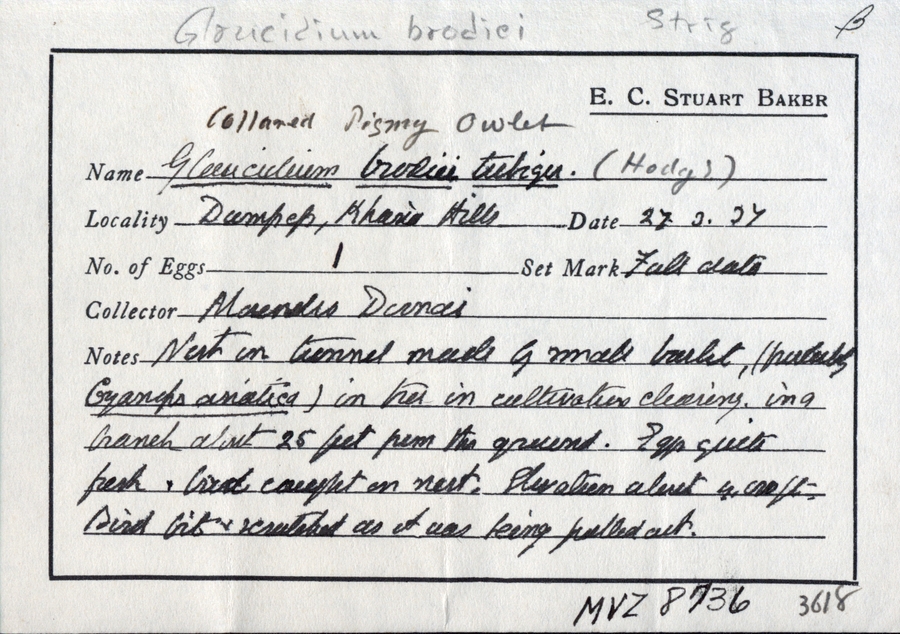 Glaucidium brodiei Strig
E. C. STUART BAKER
Collared Pigmy Owlet
Name Glaucidium brodiei tubiger. (Hodgs)
Locality Dumpep, Khasia Hills Date 27. 3. 37
No. of Eggs 1 Set Mark Full data
Collector Domai
Notes Nest in tunnel made by small barbet, (probably
Cyanops asiatica) in tree in cultivation clearing. in a
branch about 25 feet from the ground. Egg quite
fresh & bird caught on nest. Elevation about 4,000 ft
Bird bit & scratched as it was being pulled out.
MVZ 8736 3618